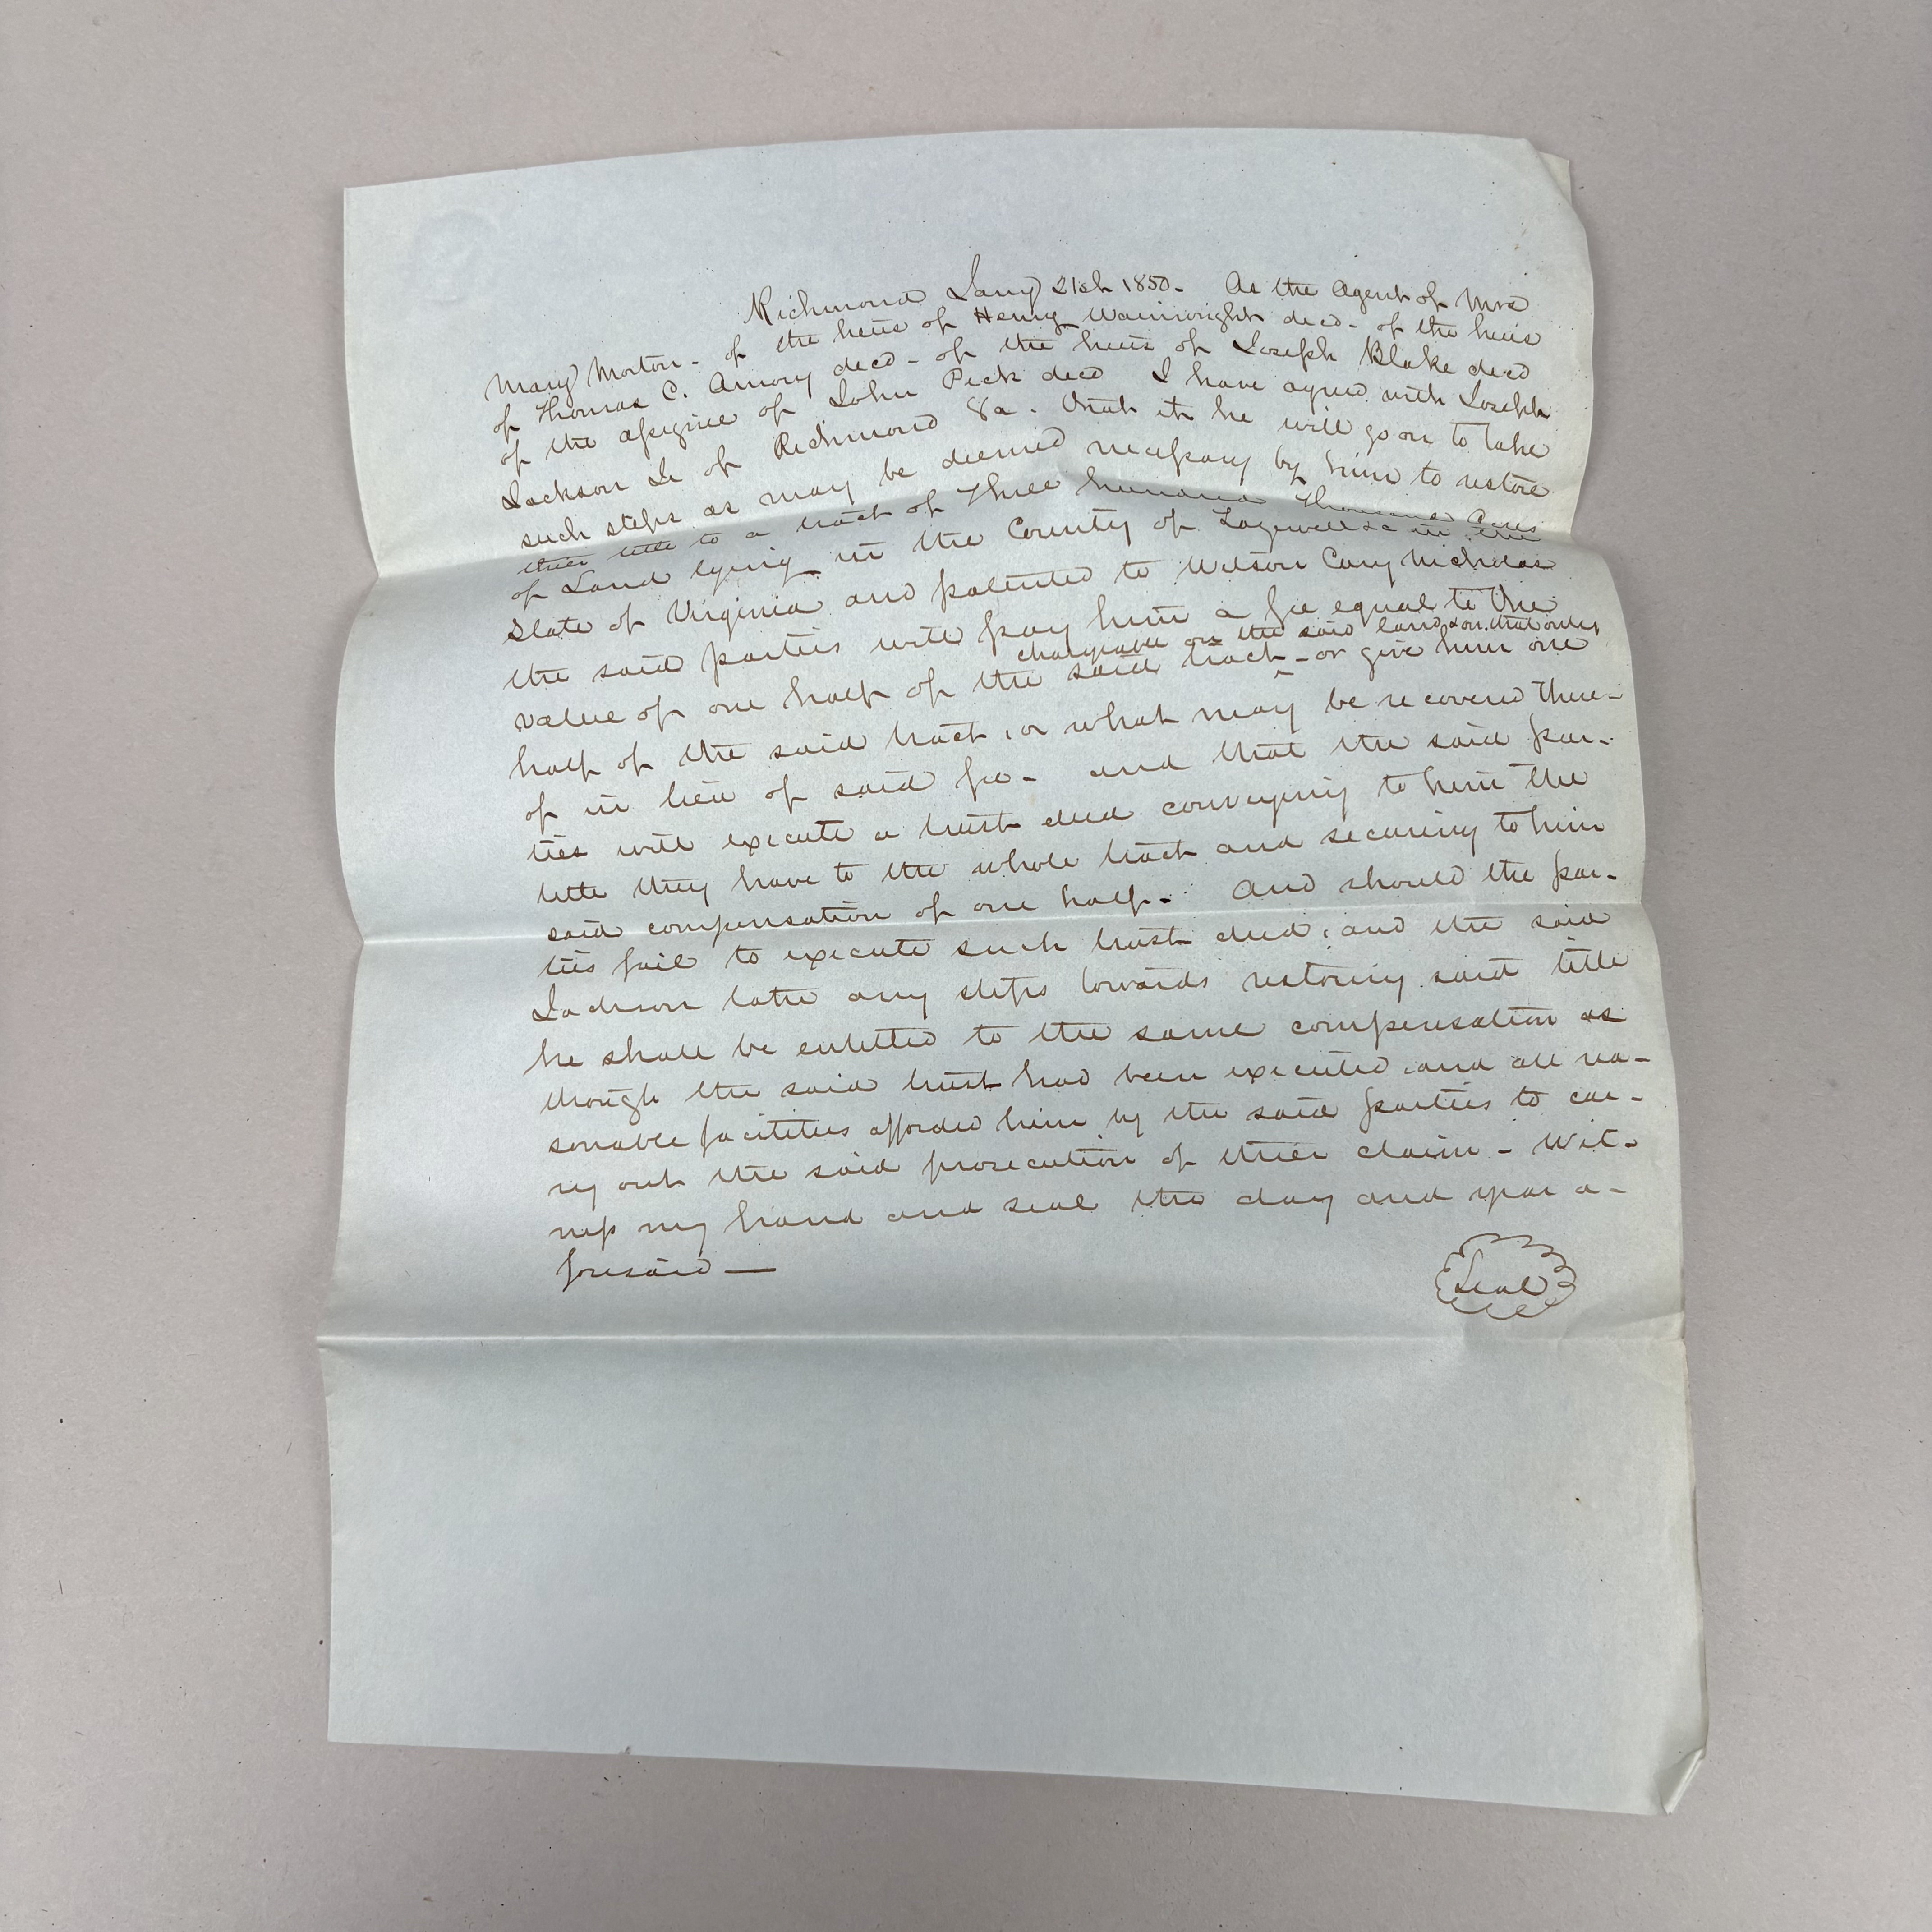 Richmond Jany 21st 1850. As the Agent of Mrs
Mary Morton - of the heirs of Henry Wainwright decd - of the heirs
of Thomas C. Amory decd - of the heirs of Joseph Blake decd
of the assignee of John Peck decd I have agreed with Joseph
Jackson Jr of Richmond Va. that if he will go on to take
such steps as may be deemed necessary by him to restore
their title to a tract of Three hundred Thousand Acres
of Land lying in the County of Tazewell &c in the
State of Virginia and patented to Wilson Cary Nicholas
the said parties will pay him a fee equal to the
chargeable on the said land & on that only
value of one half of the said tract - or give him one
half of the said tract, or what may be recovered there-
of in lieu of said fee - and that the said par-
ties will execute a trust deed conveying to him the
title they have to the whole tract and securing to him
said compensation of one half - And should the par-
ties fail to execute such trust deed, and the said
Jackson take any steps towards restoring said title
he shall be entitled to the same compensation as
though the said trust had been executed, and all rea-
sonable facilities afforded him by the said parties to car-
ry out the said prosecution of their claim - Wit-
ness my hand and seal the day and year a-
foresaid —
Seal